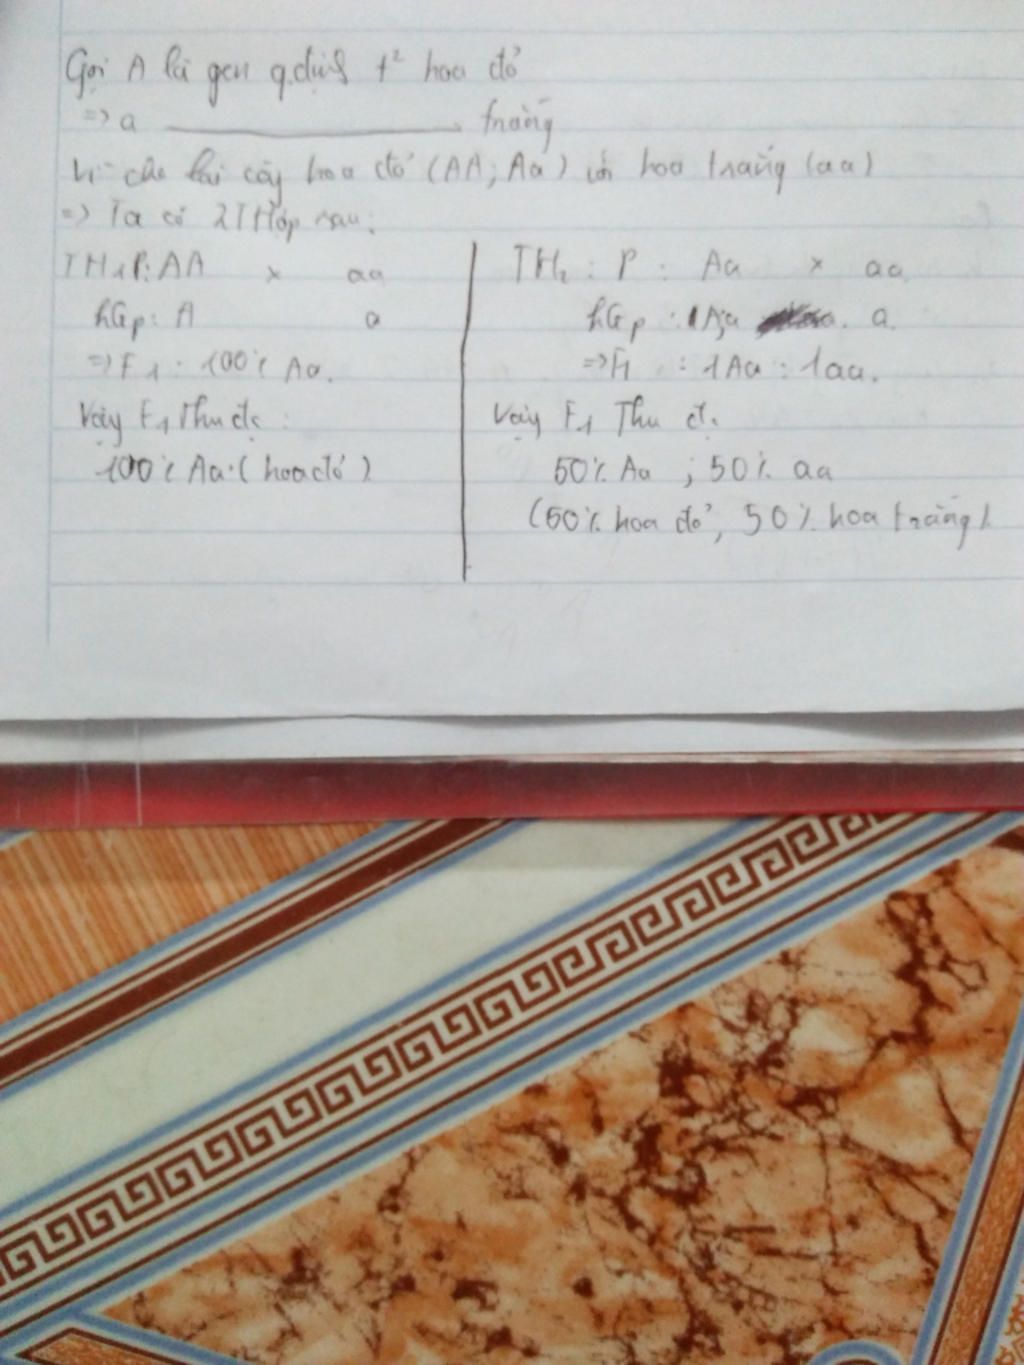 Gọi A là gen q.định t² hoa đỏ
=> a ______________ trắng
Vì cho lai cây hoa đỏ (AA; Aa) với hoa trắng (aa)
=> Ta có 2THợp sau:
TH1 P: AA x aa
hGp: A a
=> F1: 100% Aa.
Vậy F1 Thu đc:
100% Aa (hoa đỏ)
TH2: P: Aa x aa
hGp: 1A;a a.
=> F1 : 1Aa : 1aa.
Vậy F1 Thu đ.
50% Aa ; 50% aa
(50% hoa đỏ, 50% hoa trắng)